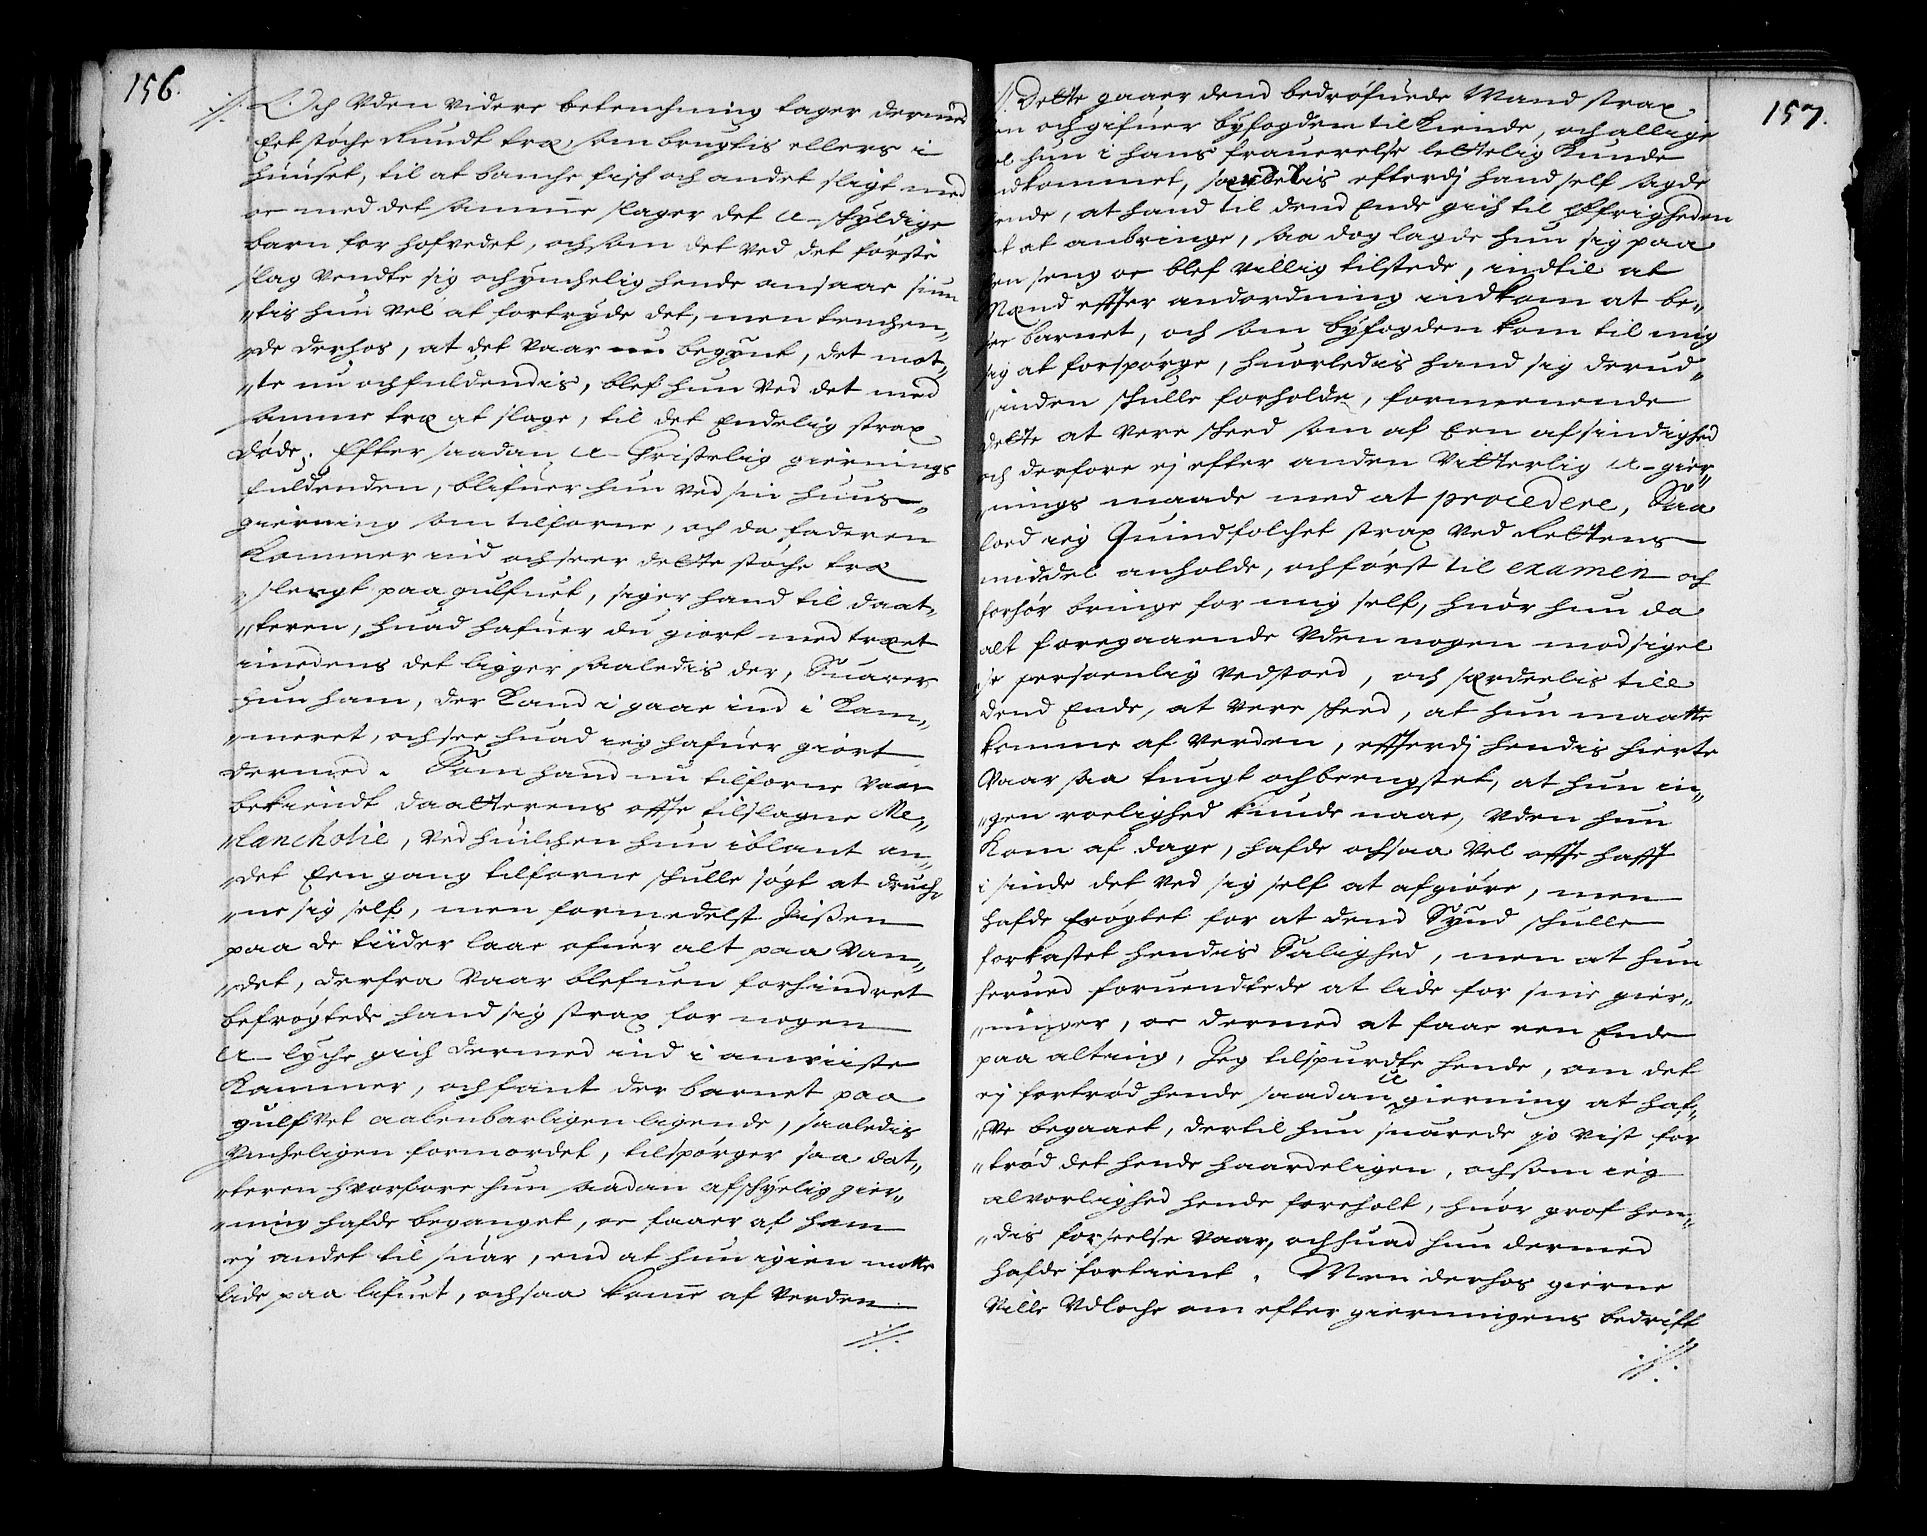 156.
./. Och Uden videre betenchning tager dermed
Eet støche Rundt træ, som brugtis ellers i
huuset, til at banche fisk och andet sligt med
oc med det samme slager det U-skyldige
barn for hofvedet, och som det ved det første
slag vendte sig och ynchelig hende ansaae siun
„tis hun vel at fortryde det, men tenchen„
„de derhos, at det vaar begynt, det mot„
„te nu och fuldendis, blef hun ved det med
samme træ at slage, til det Endelig strax
døde; Efter saadan U-Christelig giernings
fuldenden, blifuer hun ved sin huus„
gierning som tilforne, och da faderen
Kommer ind och seer dette støche træ
slengt paa gulfuet, siger hand til daat„
„teren, huad hafuer du giort med træet
imedens det ligger saaledis der, Suarer
hun ham, der Kand i gaae ind i Kam„
„meret, och see huad ieg hafuer giort
dermed. Som hand nu tilforne vaar
bekiendt daatterens offte tilslagne Me„
„lancholie, ved huilchen hun iblant an„
„det Een gang tilforne skulle søgt at druch„
„ne sig self, men formedelst Jissen
paa de tiider laae ofuer alt paa Van„
„det, derfra vaar blefuen forhindret
befrøgtede hand sig strax for nogen
U-lyche gich dermed ind i anviiste
Kammer, och fant der barnet paa
gulfvet aabenbarligen ligende, saaledis
yncheligen formordet, tilspørger saa dat„
„teren hvorfore hun saadan afskyelig gier„
„ning hafde beganget, oc faaer af ham
ej andet til suar, end at hun igien motte
lide paa lifuet, och saa komme af Verden
./.
157.
./. Dette gaaer dend bedrøfuede Mand strax
en och gifuer byfogden tilkiende, och allige
el hun i hans fraverelse lettelig Kunde
ndkommet, særdelis efterdj hand self sagde
ende, at hand til dend Ende gich til Øfrigheden
t at anbringe, saa dog lagde hun sig paa
en seng oc blef villig tilstede, indtil at
Mænd effter andordning indkom at be„
see barnet, och som byfogden kom til mig
sig at forspørge, huorledis hand sig derud„
„inden skulle forholde, formeenende
dette at vere skeed som af Een afsindighed
och derfore ej efter anden Vitterlig U-gier„
„nings maade med at procedere, Saa
loed ieg Quindfolchet strax ved Rettens
middel anholde, och først til examen och
forhør bringe for mig self, huor hun da
alt foregaaende Uden nogen modsigel
se persoenlig vedstoed, och særdeelis till
dend Ende, at vere skeed, at hun maatte
komme af verden, effterdj hendis hierte
Vaar saa tungt och beengstet, at hun in„
„gen roelighed kunde naae, Uden hun
Kom af dage, hafde ochsaa vel offte hafft
i sinde det ved sig self at afgiøre, men
hafde frøgtet for at dend Synd skulle
forkastet hendis Salighed, men at hun
herued foruendtede at lide for sine gier„
„ninger, oc dermed at faae een Ende
paa alting, Jeg tilspurdte hende, om det
ej fortrød hende saadan U gierning at haf„
„ve begaaet, dertil hun suarede jo vist for
„trød det hende haardeligen, och som ieg
alvorlighed hende foreholt, huor grof hen„
„dis forseelse vaar, och huad hun dermed
hafde fortient. Men derhos gierne
Ville Udloche om efter gierningens bedrift
./.